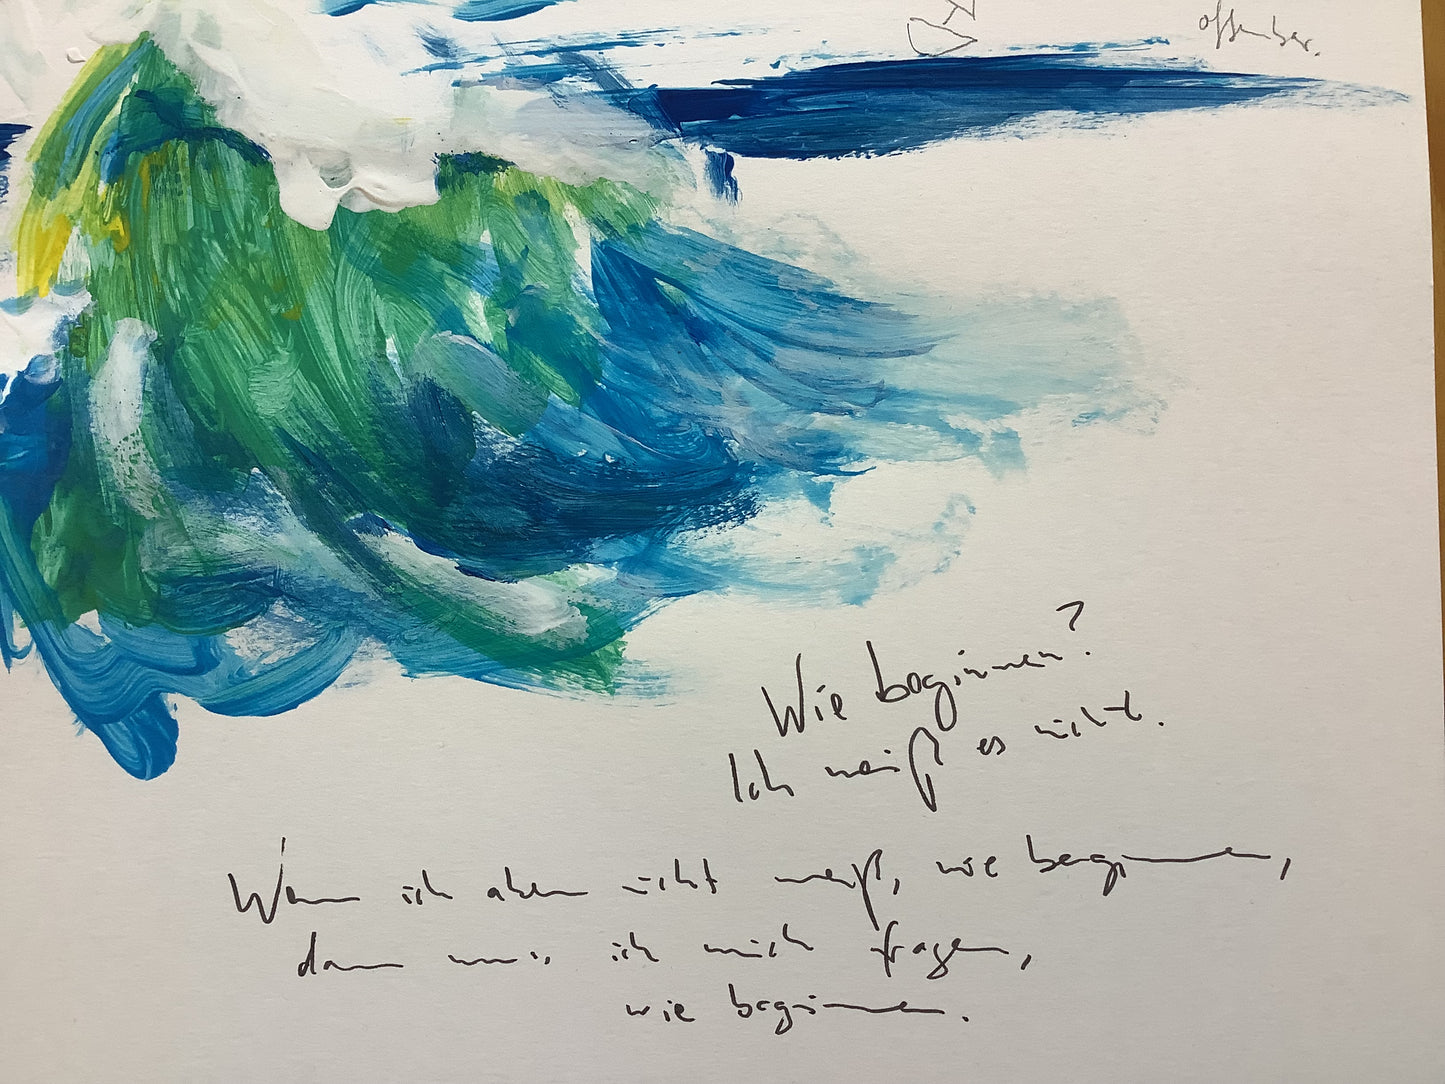 offenbar.
Wie beginnen?
Ich weiß es nicht.
Wenn ich aber nicht weiß, wie beginnen,
dann muss ich mich fragen,
wie beginnen.